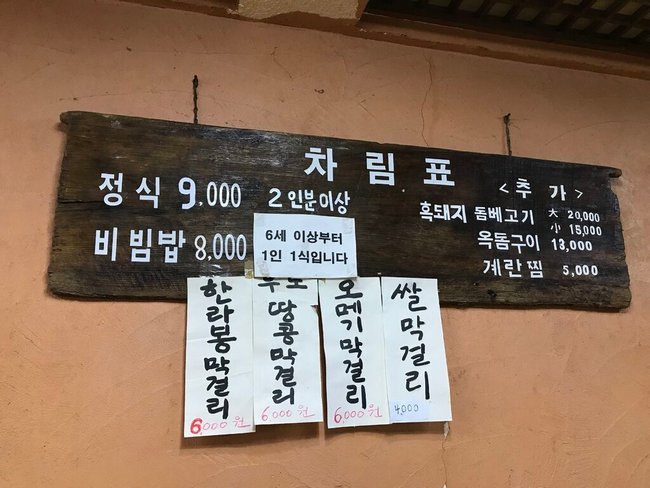 차림표
정식 9,000 2인분이상
비빔밥 8,000
6세 이상부터
1인 1식입니다
<추가>
흑돼지 돔베고기 大 20,000
小 15,000
옥돔구이 13,000
계란찜 5,000
한라봉막걸리
6,000원
우도땅콩막걸리
6,000원
오메기막걸리
6,000원
쌀막걸리
4,000